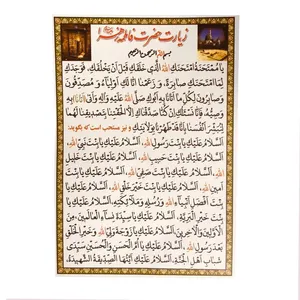 زیارت حضرت فاطمه زهرا
بسم الله الرحمن الرحیم
یا مُمْتَحَنَةُ امْتَحَنَكِ اللهُ الَّذی خَلَقَكِ قَبْلَ اَنْ یَخْلُقَكِ، فَوَجَدَكِ
لِمَا امْتَحَنَكِ صابِرَةً، وَ زَعَمْنا اَنّا لَكِ اَوْلِیاءُ وَ مُصَدِّقُونَ
وَ صابِرُونَ لِكُلِّ ما اَتانا بِهِ اَبُوكِ صَلَّی اللهُ عَلَیْهِ وَ آلِهِ وَ اَتانا بِهِ
وَصِیُّهُ، فَاِنّا نَسْئَلُكِ اِنْ كُنّا صَدَّقْناكِ اِلّا اَلْحَقْتِنا بِتَصْدیقِنا لَهُما
لِنُبَشِّرَ اَنْفُسَنا بِاَنّا قَدْ طَهُرْنا بِوِلایَتِكِ و نیز مستحب است که بگوید:
اَلسَّلامُ عَلَیْكِ یا بِنْتَ رَسُولِ اللهِ، اَلسَّلامُ عَلَیْكِ یا بِنْتَ نَبِیِّ اللهِ،
اَلسَّلامُ عَلَیْكِ یا بِنْتَ حَبیبِ اللهِ، اَلسَّلامُ عَلَیْكِ یا بِنْتَ خَلیلِ
اللهِ، اَلسَّلامُ عَلَیْكِ یا بِنْتَ صَفِیِّ اللهِ، اَلسَّلامُ عَلَیْكِ یا بِنْتَ
اَمینِ اللهِ، اَلسَّلامُ عَلَیْكِ یا بِنْتَ خَیْرِ خَلْقِ اللهِ، اَلسَّلامُ عَلَیْكِ یا
بِنْتَ اَفْضَلِ اَنْبِیاءِ اللهِ وَ رُسُلِهِ وَ مَلائِكَتِهِ، اَلسَّلامُ عَلَیْكِ یا بِنْتَ
خَیْرِ الْبَرِیَّةِ، اَلسَّلامُ عَلَیْكِ یا سَیِّدَةَ نِساءِ الْعالَمینَ، مِنَ
الْاَوَّلینَ وَ الْآخِرینَ، اَلسَّلامُ عَلَیْكِ یا زَوْجَةَ وَلِیِّ اللهِ وَ خَیْرِ الْخَلْقِ
بَعْدَ رَسُولِ اللهِ، اَلسَّلامُ عَلَیْكِ یا اُمَّ الْحَسَنِ وَ الْحُسَیْنِ سَیِّدَیْ
شَبابِ اَهْلِ الْجَنَّةِ، اَلسَّلامُ عَلَیْكِ اَیَّتُهَا الصِّدّیقَةُ الشَّهیدَةُ،